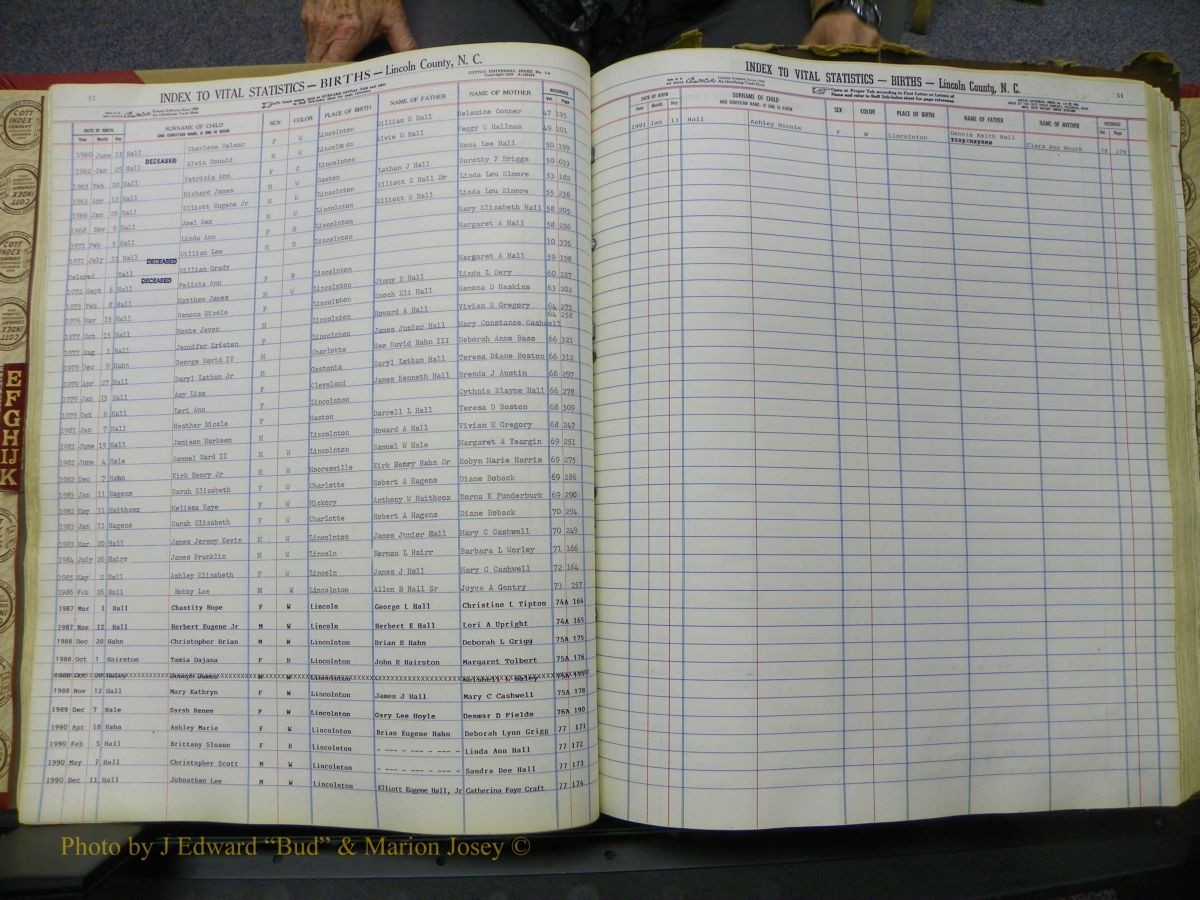 52
INDEX TO VITAL STATISTICS — BIRTHS — Lincoln County, N. C.
COTT
INDEX
COMPANY
DATE OF BIRTH
Year Month Day
SURNAME OF CHILD
AND CHRISTIAN NAME, IF ONE IS GIVEN
SEX COLOR PLACE OF BIRTH NAME OF FATHER NAME OF MOTHER
RECORDED
Vol. Page
1960 June 15 Hall Charlene Delmar F W Lincolnton William G Hall Relamine Conner 47 195
1962 Jan 29 Hall DECEASED Alvin Donald M W Lincolnton Alvie O Hall Peggy C Hallman 49 201
1963 Feb 20 Hall Patricia Ann F C Lincolnton Rosa Lee Hall 50 199
1963 Apr 12 Hall Richard James M W Gaston Lathan J Hall Dorothy F Briggs 50 633
1966 Jan 26 Hall Elliott Eugene Jr M W Lincolnton Elliott E Hall Sr Linda Lou Elmore 53 182
1968 Nov 9 Hall Joel Rex M W Lincolnton Elliott E Hall Linda Lou Elmore 55 236
1971 Feb 5 Hall Linda Ann F B Lincolnton Mary Elizabeth Hall 58 205
1971 July 31 Hall William Lee M B Lincolnton Margaret A Hall 58 226
Delayed Hall DECEASED William Grady 10 376
1972 Sept 6 Hall DECEASED Felicia Ann F B Lincolnton Margaret A Hall 59 198
1973 Feb 8 Hall Matthew James M W Lincolnton Jimmy R Hall Linda L Dery 60 227
1976 Mar 15 Hall Remona Nicole F Lincolnton Enoch Eli Hall Remona D Haskins 63 202
1977 Oct 15 Hall Monte Jevon M Lincolnton Howard A Hall Vivian E Gregory 64 271
1977 Aug 1 Hall Jennifer Kristen F Lincolnton James Junior Hall Mary Constance Cashwell 64 258
1979 Dec 9 Hahn George David IV M Charlotte Geo David Hahn III Deborah Anne Bass 66 321
1979 Apr 27 Hall Daryl Lathan Jr M Gastonia Daryl Lathan Hall Teresa Diane Boston 66 312
1979 Jan 13 Hall Amy Lisa F Cleveland James Kenneth Hall Brenda J Austin 66 297
1979 Oct 6 Hall Lori Ann F Lincolnton Cythnia Elayne Hall 66 278
1981 Jan 7 Hall Heather Nicole F Gaston Darrell L Hall Teresa D Boston 68 309
1981 June 15 Hall Jamison Harkeem M Lincolnton Howard A Hall Vivian E Gregory 68 247
1982 June 4 Hale Samuel Ward II M W Lincolnton Samuel W Hale Margaret A Yeargin 69 251
1982 Dec 7 Hahn Kirk Henry Jr M W Mooresville Kirk Henry Hahn Sr Robyn Marie Harris 69 275
1983 Jan 11 Hagens Sarah Elizabeth F W Charlotte Robert A Hagens Diane Boback 69 286
1982 May 31 Haithcox Melissa Kaye F W Hickory Anthony W Haithcox Norna K Funderburk 69 290
1983 Jan 11 Hagens Sarah Elizabeth F W Charlotte Robert A Hagens Diane Boback 70 294
1983 Mar 20 Hall James Jeremy Kevin M W Lincoln James Junior Hall Mary C Cashwell 70 249
1984 July 26 Hairr James Franklin M W Lincoln Norman L Hairr Barbara L Worley 71 166
1985 May 2 Hall Ashley Elizabeth F W Lincoln James J Hall Mary C Cashwell 72 164
1986 Feb 26 Hall Bobby Lee M W Lincolnton Allen B Hall Sr Joyce A Gentry 73 157
1987 Mar 1 Hall Chastity Hope F W Lincoln George L Hall Christine L Tipton 74A 164
1987 Nov 12 Hall Herbert Eugene Jr M W Lincoln Herbert E Hall Lori A Upright 74A 165
1988 Dec 20 Hahn Christopher Brian M W Lincolnton Brian E Hahn Deborah L Grigg 75A 175
1988 Oct 1 Hairston Tamia Dajana F B Lincolnton John R Hairston Margaret Tolbert 75A 176
1988 Nov 12 Hall Mary Kathryn F W Lincolnton James J Hall Mary C Cashwell 75A 178
1989 Dec 7 Hale Sarah Renee F W Lincolnton Gary Lee Hoyle Desmar D Fields 76A 190
1990 Apr 16 Hahn Ashley Marie F W Lincolnton Brian Eugene Hahn Deborah Lynn Grigg 77 171
1990 Feb 5 Hall Brittany Sloane F B Lincolnton - --- - --- - --- - Linda Ann Hall 77 172
1990 May 7 Hall Christopher Scott M W Lincolnton - --- - --- - --- - Sandra Dee Hall 77 173
1990 Dec 11 Hall Johnathan Lee M W Lincolnton Elliott Eugene Hall, Jr Catherina Faye Craft 77 174
INDEX TO VITAL STATISTICS — BIRTHS — Lincoln County, N. C.
51
DATE OF BIRTH
Year Month Day
SURNAME OF CHILD
AND CHRISTIAN NAME, IF ONE IS GIVEN
SEX COLOR PLACE OF BIRTH NAME OF FATHER NAME OF MOTHER
RECORDED
Vol. Page
1991 Jan 13 Hall Ashley Nicole F W Lincolnton Dennis Keith Hall Clara Ann Houck 78 179
E
F
G
H
IJ
K
Photo by J Edward “Bud” & Marion Josey ©